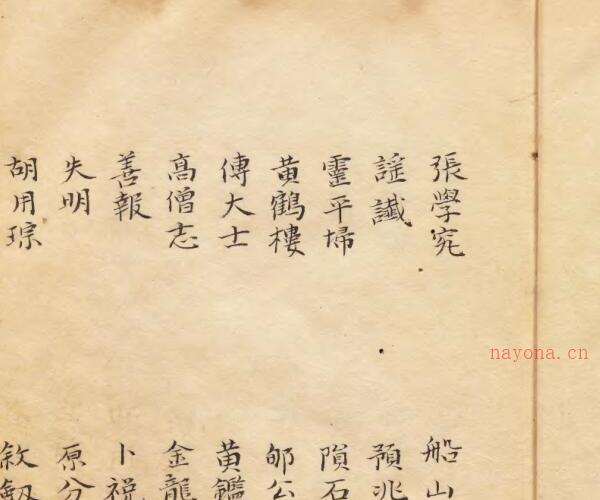 張學究
謠讖
靈平埽
黃鶴樓
傅大士
高僧志
善報
失明
胡用琮
船山
預兆
隕石
郇公
黃鑑
金龍
卜
原分
敘劔
nayona.cn